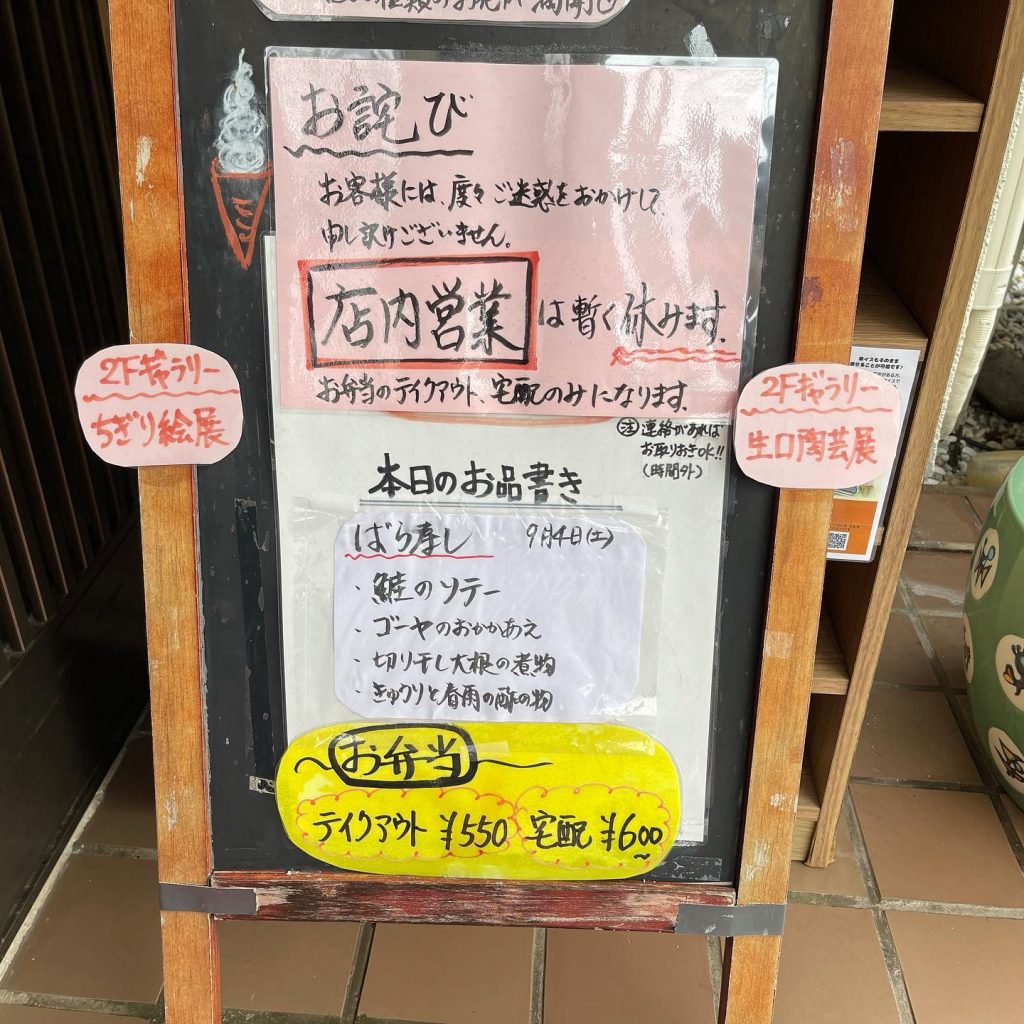 お詫び
お客様には、度々ご迷惑をおかけして、
申し訳けございません。
店内営業は暫く休みます。
お弁当のテイクアウト、宅配のみになります。
注 連絡があれば
お取りおきOK!!
(時間外)
2Fギャラリー
ちぎり絵展
2Fギャラリー
生口陶芸展
本日のお品書き
ばら寿し 9月4日(土)
・鮭のソテー
・ゴーヤのおかかあえ
・切り干し大根の煮物
・きゅうりと春雨の酢の物
お弁当
テイクアウト ¥550 宅配 ¥600~